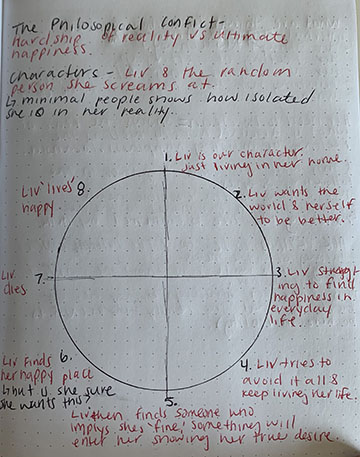 The Philosopical Conflict-
hardship of reality vs ultimate
happiness.
Characters - Liv & the random
person she screams at.
↳ minimal people shows how isolated
she is in her reality.
1. Liv is our character.
Just living in her home.
2. Liv wants the
world & herself
to be better.
3. Liv struggl
ing to find
happiness in
everyday
life.
4. Liv tries to
avoid it all &
keep living her life.
5.
Liv then finds someone who
implys she's 'fine', something will
enter her showing her true desire.
Liv finds 6.
her happy place
↳ but is she sure
she wants this?
Liv 7.
dies
Liv 'lives' 8.
happy.